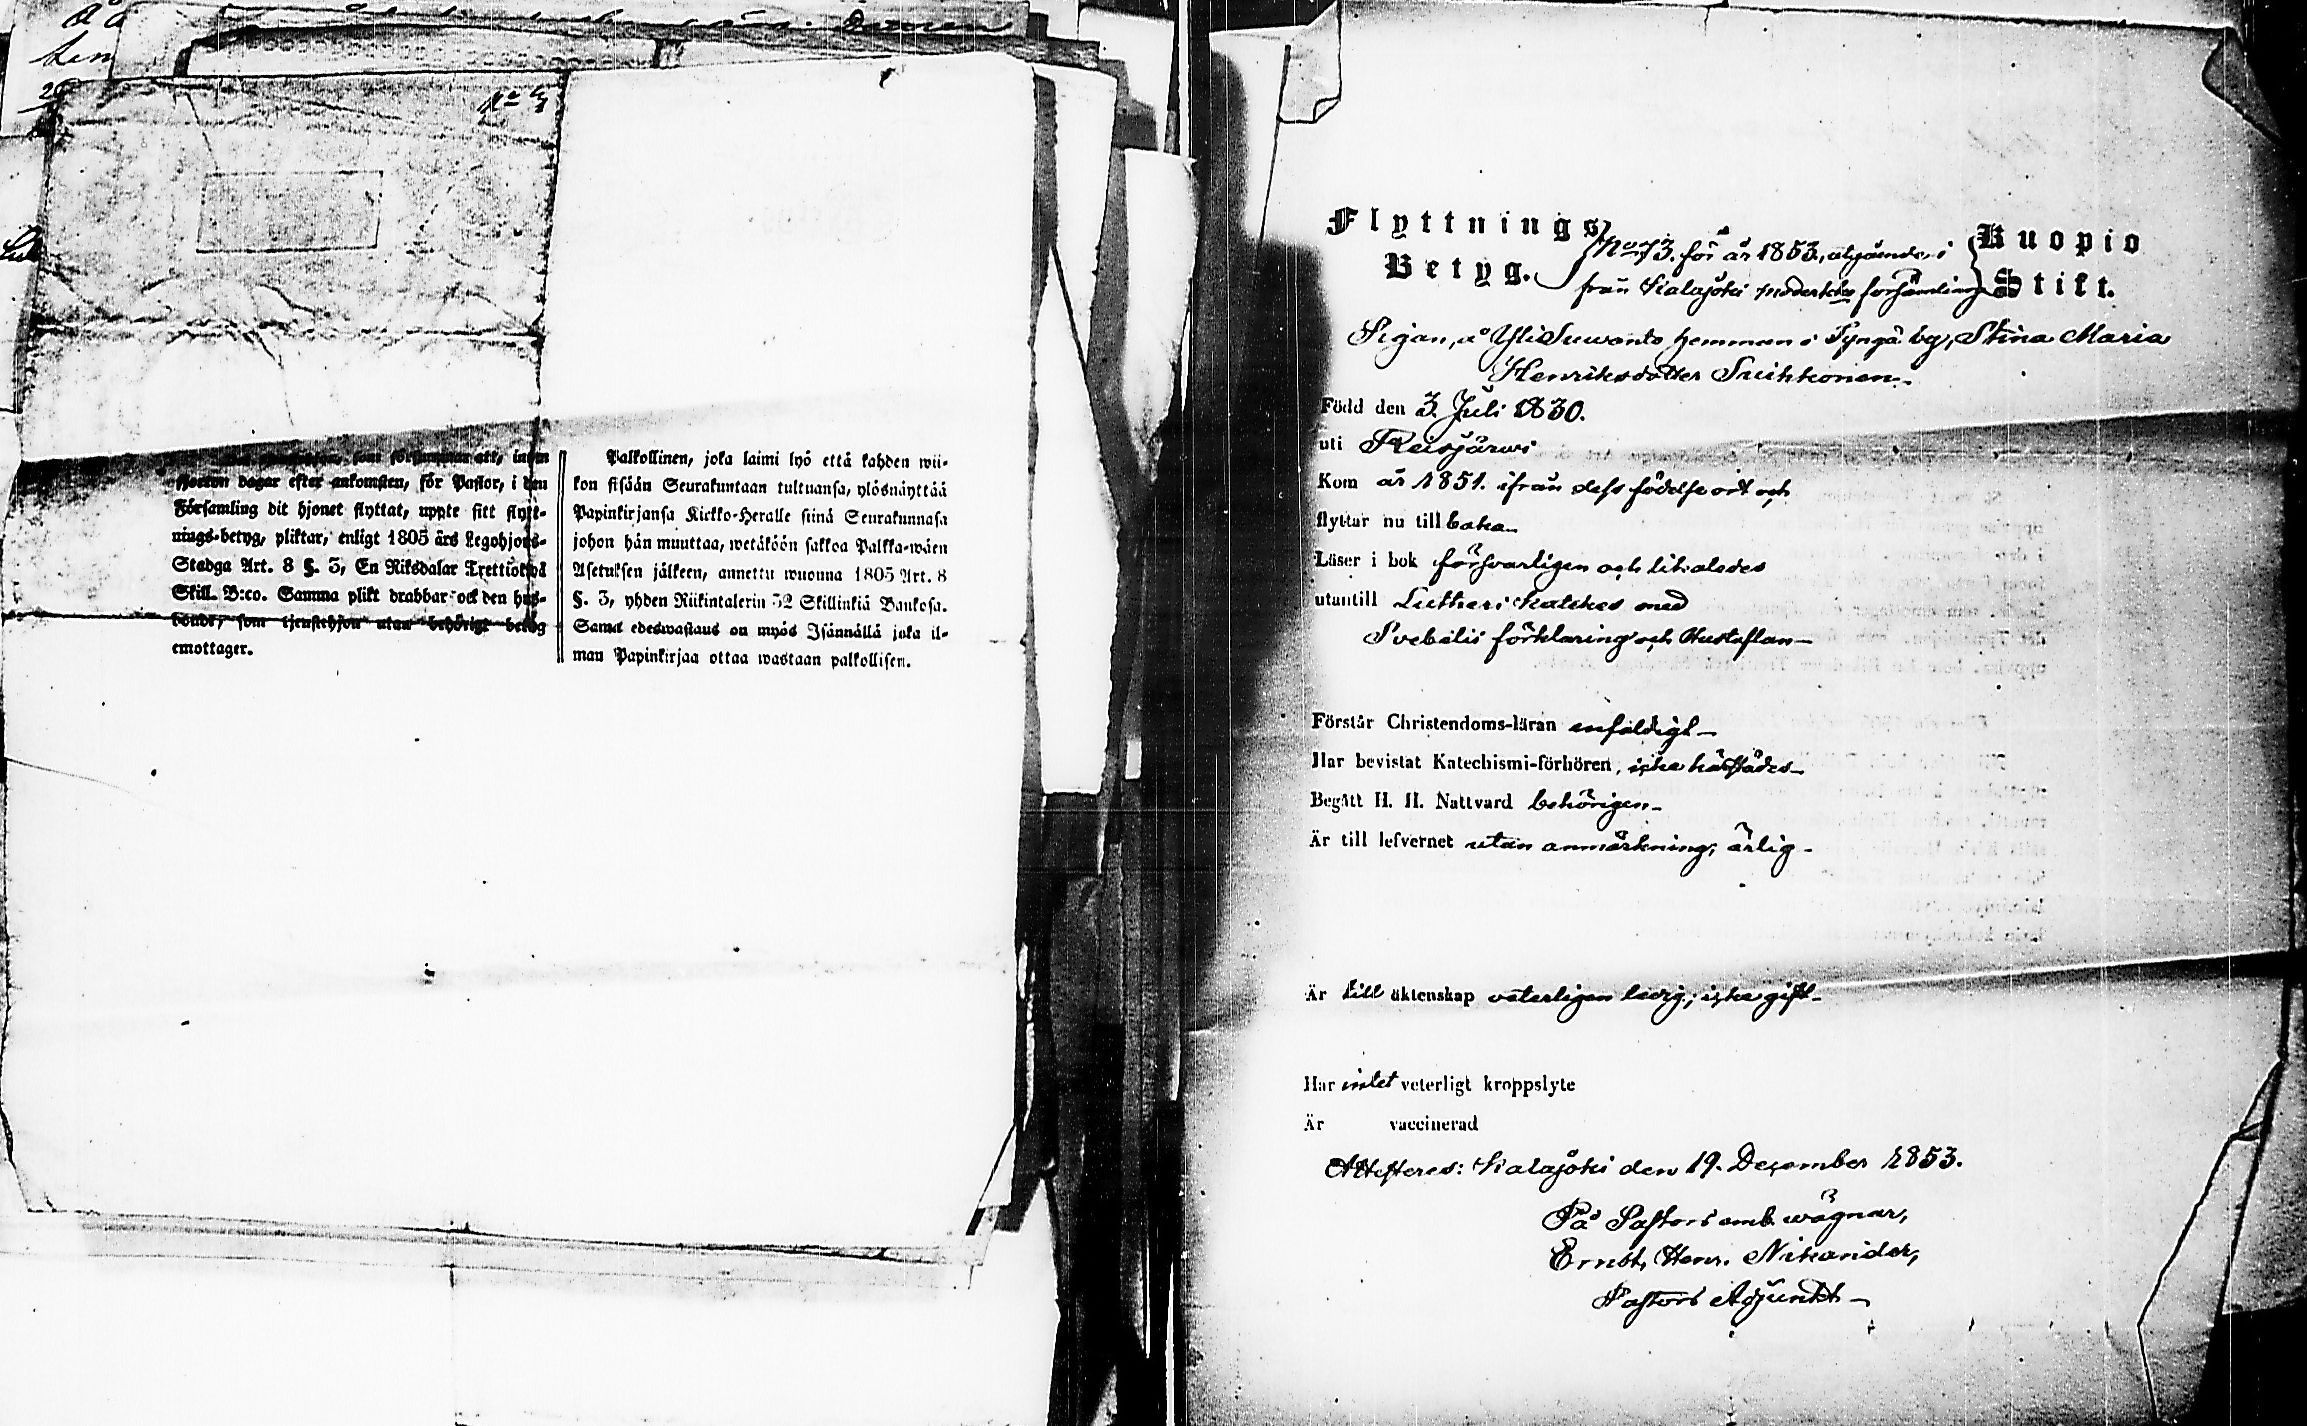 som försummar att, inom
fjorton dagar efter ankomsten, för Pastor, i den
Församling dit hjonet flyttat, uppte sitt flytt-
nings-betyg, pliktar, enligt 1805 års Legohjons-
Stadga Art. 8 §. 3, En Riksdalar Trettiotvå
Skill. B:co. Samma plikt drabbar ock den hus-
bonde, som tjenstehjon utan behörigt betyg
emottager.
Palkollinen, joka laimi lyö että kahden wii-
kon sisään Seurakuntaan tultuansa, ylösnäyttää
Papinkirjansa Kirkko-Heralle siinä Seurakunnasa
johon hän muuttaa, wetäköön sakkoa Palkka-wäen
Asetuksen jälkeen, annettu wuonna 1805 Art. 8
§. 3, yhden Riikintalerin 32 Skillinkiä Bankosa.
Sama edeswastaus on myös Isännällä joka il-
man Papinkirjaa ottaa wastaan palkollisen.
Flyttnings
Betyg.
No 73. för år 1853, utgående i
från Kalajoki moderkks församling
Kuopio
Stift.
Pigan, å YliSuwanto hemman i Tyngä by, Stina Maria
Henriksdotter Suihkonen.
Född den 3. Juli 1830.
uti Reisjärwi
Kom år 1851. ifrån dess födelseort och
flyttar nu tillbaka
Läser i bok försvarligen och likaledes
utantill Lutheri Katekes med
Svebilii förklaring och Hustaflan
Förstår Christendoms-läran enfaldigt
Har bevistat Katechismi-förhören, icke härstädes
Begått H. H. Nattvard behörigen
Är till lefvernet utan anmärkning, ärlig
Är till äktenskap veterligen ledig; icke gift
Har intet veterligt kroppslyte
Är vaccinerad
Attesteras: Kalajoki den 19. December 1853.
På Pastors emb. wägnar,
Ernst Henr. Nikander,
Pastors Adjunkt